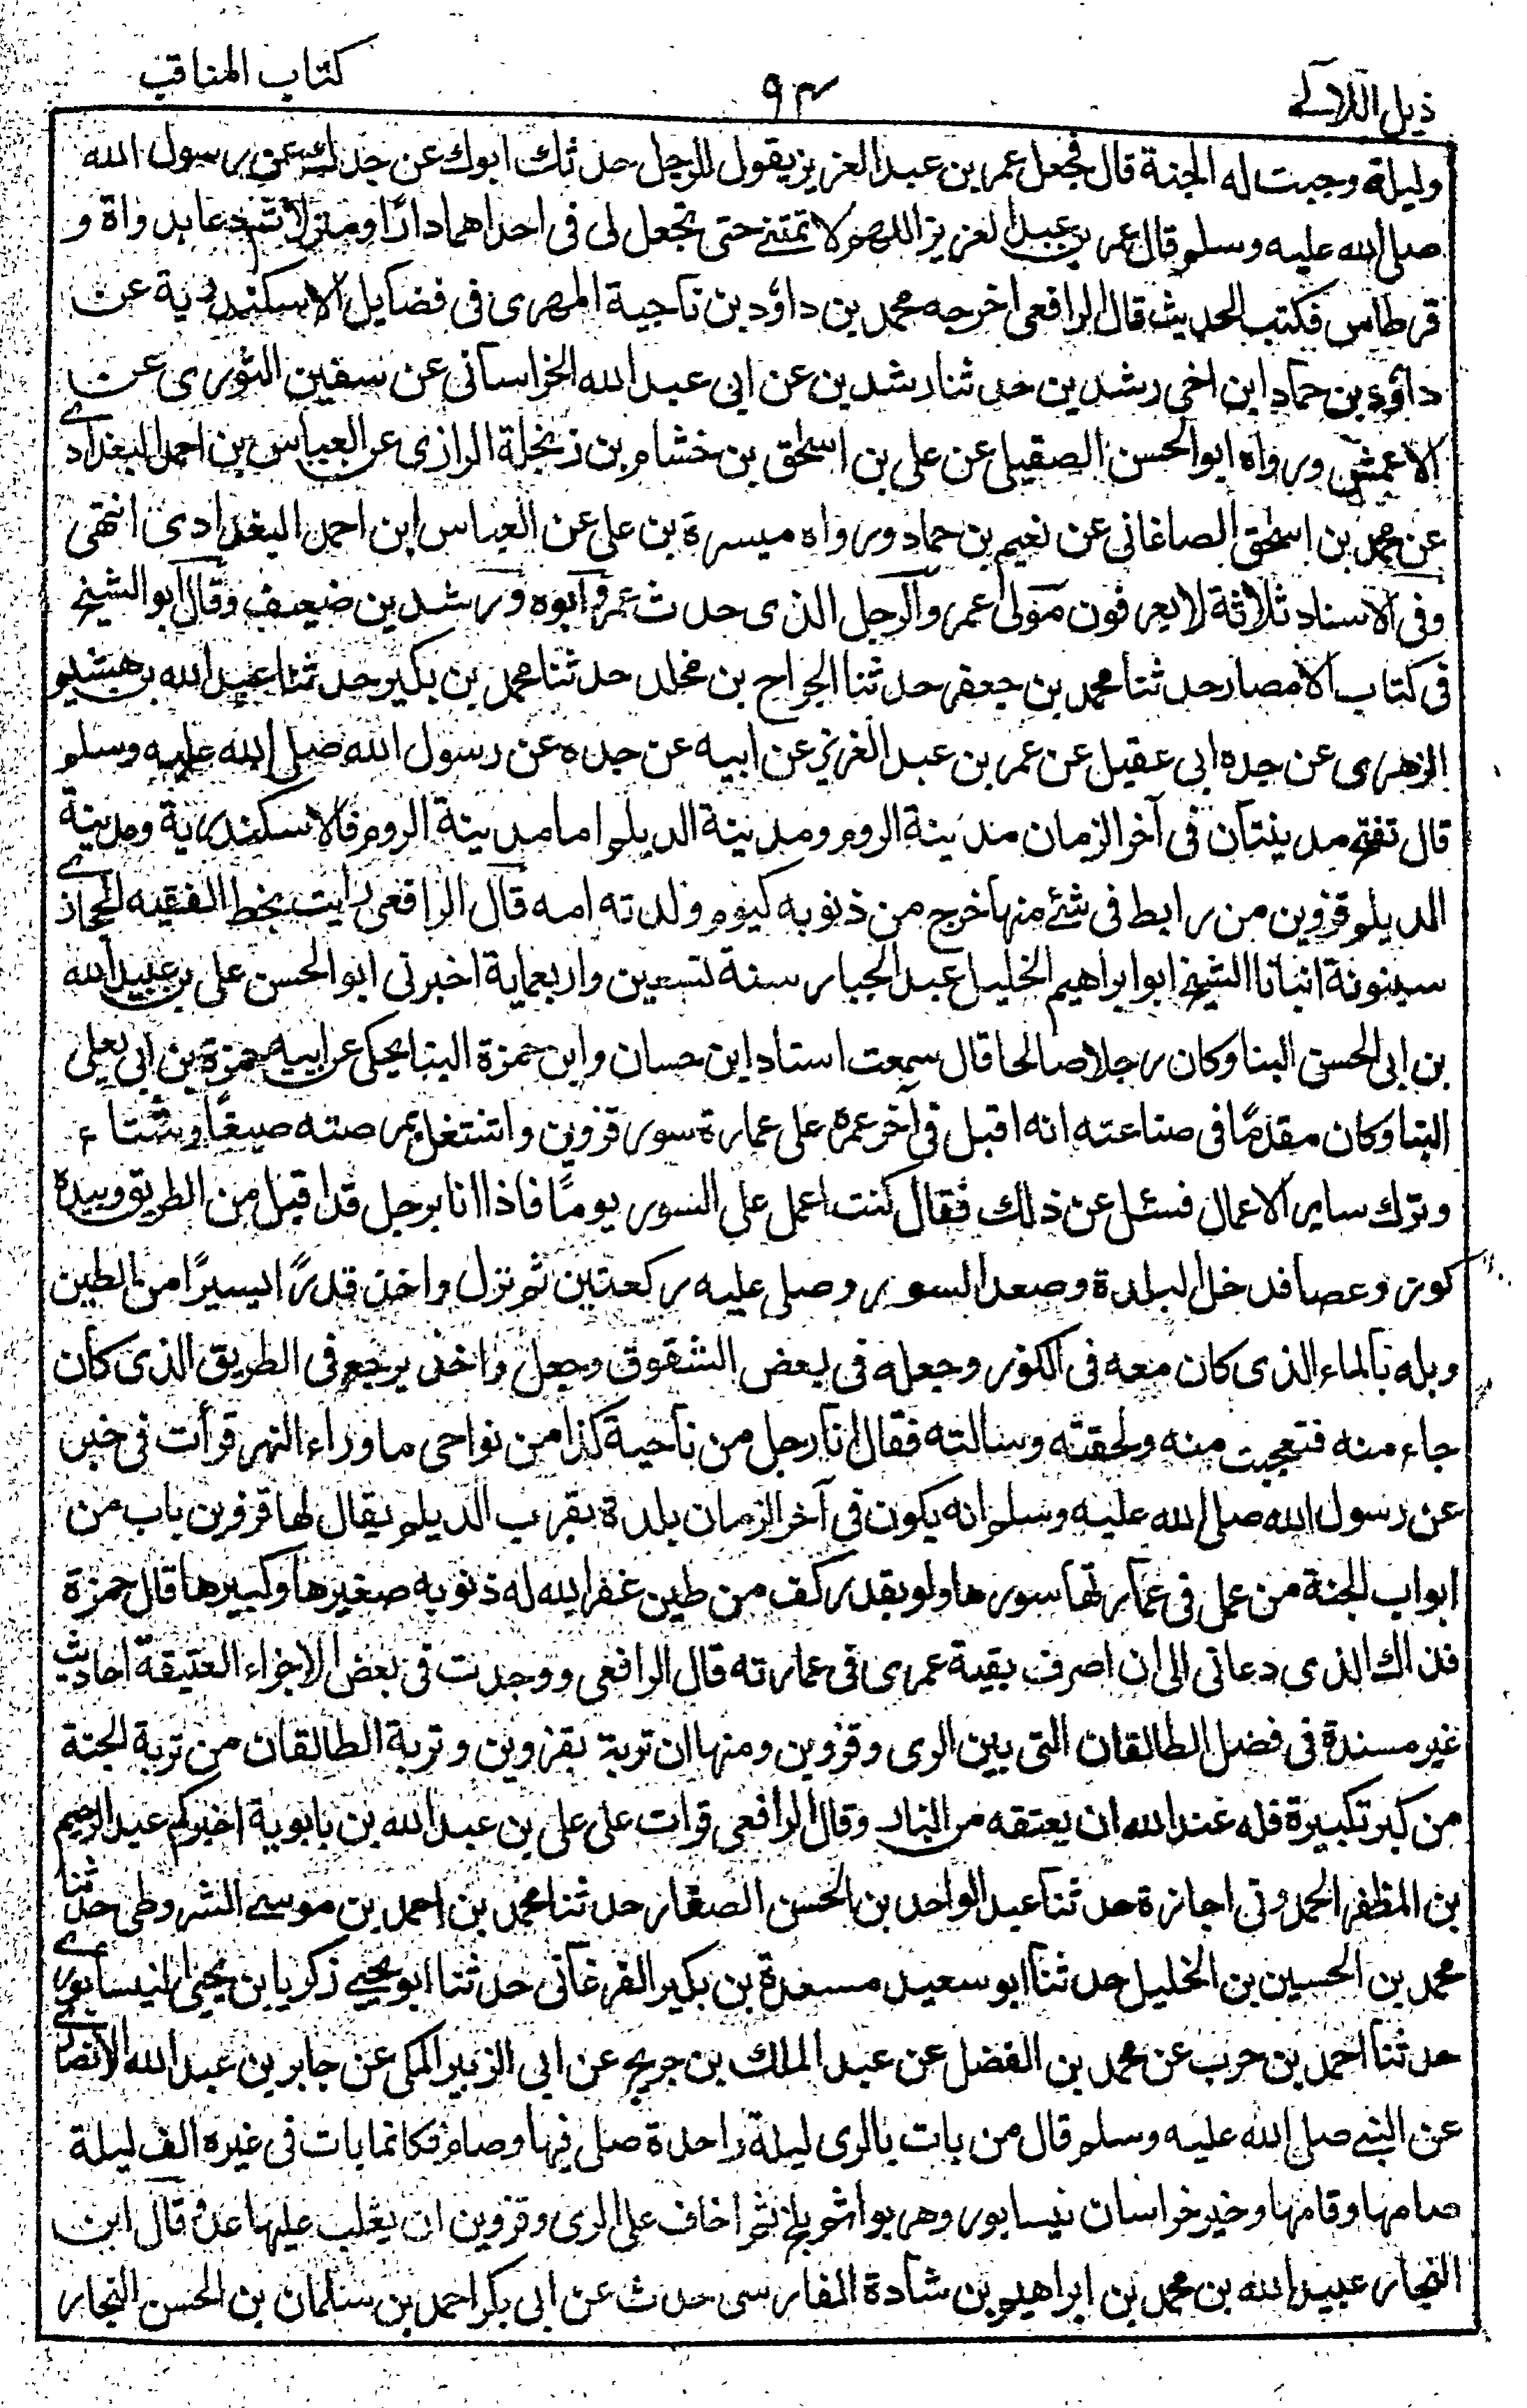 ذيل اللآلے
٩٣
كتاب المناقب
وليلة وجبت له الجنة قال فجعل عمر بن عبد العزيز يقول للرجل حدثك ابوك عن جدك عن رسول الله
صلى الله عليه وسلم قال عمر بن عبد العزيز اللهم لا تمتنے حتى تجعل لى فى احداهما دارًا ومنزلا ثم دعا بدواة و
قرطاس فكتب الحديث قال الرافعى اخرجه محمد بن داؤد بن ناجية المهرى فى فضايل الاسكندرية عن
داؤد بن حماد ابن اخى رشدين حدثنا رشدين عن ابى عبد الله الخراسانى عن سفين الثورى عن
الاعمش ورواه ابو الحسن الصقيلى عن على بن اسحٰق بن خشام بن زنجلة الرازى عن العباس بن احمد البغدادے
عن محمد بن اسحٰق الصاغانى عن نعيم بن حماد ورواه ميسرة بن على عن العباس ابن احمد البغدادى انتهى
وفى الاسناد ثلاثة لا يعرفون مولى عمر والرجل الذى حدث عمر وابوه ورشدين ضعيف وقال ابو الشيخ
فى كتاب الامصار حدثنا محمد بن جعفر حدثنا الجراح بن مخلد حدثنا محمد بن بكير حدثنا عبد الله بن هشيم
الزهرى عن جده ابى عقيل عن عمر بن عبد العزيز عن ابيه عن جده عن رسول الله صلى الله عليه وسلم
قال تفتح مدينتان فى آخر الزمان مدينة الروم ومدينة الديلم اما مدينة الروم فالاسكندرية ومدينة
الديلم قزوين من رابط فى شئ منها خرج من ذنوبه كيوم ولدته امه قال الرافعى رايت بخط الفقيه الحجازے
سينونة انبانا الشيخ ابو ابراهيم الخليل عبد الجبار سنة تسعين واربعماية اخبرنى ابو الحسن على بن عبيد الله
بن ابى الحسن البنا وكان رجلا صالحا قال سمعت استاد ابن حسان وابن حمزة البنا يحكى عن ابيه حمزة بن ابى يعلى
البنا وكان مقدمًا فى صناعته انه اقبل فى آخر عمره على عمارة سور قزوين واشتغل بمرمته صيفًا وشتاء
وترك ساير الاعمال فسئل عن ذلك فقال كنت اعمل على السور يومًا فاذا انا برجل قد اقبل من الطريق وبيده
كوز وعصا فدخل البلدة وصعد السور وصلى عليه ركعتين ثم نزل واخذ قدرًا يسيرًا من الطين
وبله بالماء الذى كان معه فى الكوز وجعله فى بعض الشقوق وجعل واخذ يرجع فى الطريق الذى كان
جاء منه فتعجبت منه ولحقته وسالته فقال انا رجل من ناحية كذا من نواحى ما وراء النهر قرأت فى خبر
عن رسول الله صلى الله عليه وسلم انه يكون فى آخر الزمان بلدة بقرب الديلم يقال لها قزوين باب من
ابواب الجنة من عمل فى عمارتها سورها ولو بقدر كف من طين غفر الله له ذنوبه صغيرها وكبيرها قال حمزة
فذاك الذى دعانى الى ان اصرف بقية عمرى فى عمارته قال الرافعى ووجدت فى بعض الاجزاء العتيقة احاديث
غير مسندة فى فضل الطالقان التى بين الرى وقزوين ومنها ان تربة بقزوين وتربة الطالقان من تربة الجنة
من كبر تكبيرة فله عند الله ان يعتقه من النار وقال الرافعى قرات على على بن عبد الله بن بابوية اخبركم عبد الرحيم
بن المظفر الحمدونى اجازة حدثنا عبد الواحد بن الحسن الصفار حدثنا محمد بن احمد بن موسے الشروطى حدثنا
محمد بن الحسين بن الخليل حدثنا ابو سعيد مسعدة بن بكير الفرغانى حدثنا ابو يحيے زكريا بن يحيىٰ النيسابورے
حدثنا احمد بن حرب عن محمد بن الفضل عن عبد الملك بن جريج عن ابى الزبير المكى عن جابر بن عبد الله الانصارے
عن النبے صلى الله عليه وسلم قال من بات بالرى ليلة واحدة صلى فيها وصام فكانما بات فى غيره الف ليلة
صامها وقامها وخير خراسان نيسابور وهريو اثم بلخ ثم اخاف على الرى وقزوين ان يغلب عليها عدو قال ابن
النجار عبيد الله بن محمد بن ابراهيم بن شادة الفارسى حدث عن ابى بكر احمد بن سلمان بن الحسن النجار